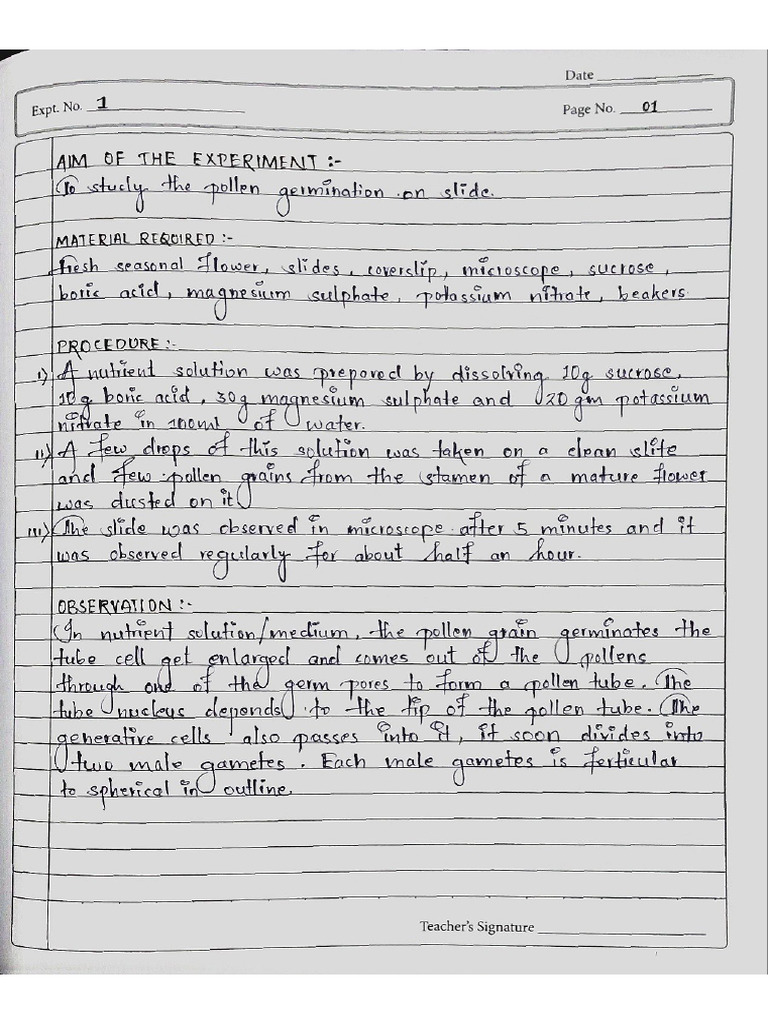 Date
Expt. No. 1
Page No. 01
AIM OF THE EXPERIMENT :-
To study the pollen germination on slide.
MATERIAL REQUIRED :-
fresh seasonal flower, slides, coverslip, microscope, sucrose,
boric acid, magnesium sulphate, potassium nitrate, beakers.
PROCEDURE :-
i) A nutrient solution was prepared by dissolving 10g sucrose,
10g boric acid, 30g magnesium sulphate and 20 gm potassium
nitrate in 100ml of water.
ii) A few drops of this solution was taken on a clean slite
and few pollen grains from the stamen of a mature flower
was dusted on it
iii) The slide was observed in microscope after 5 minutes and it
was observed regularly for about half an hour.
OBSERVATION :-
In nutrient solution/medium, the pollen grain germinates the
tube cell get enlarged and comes out of the pollens
through one of the germ pores to form a pollen tube. The
tube nucleus depends to the tip of the pollen tube. The
generative cells also passes into it, it soon divides into
two male gametes. Each male gametes is ferticular
to spherical in outline.
Teacher's Signature